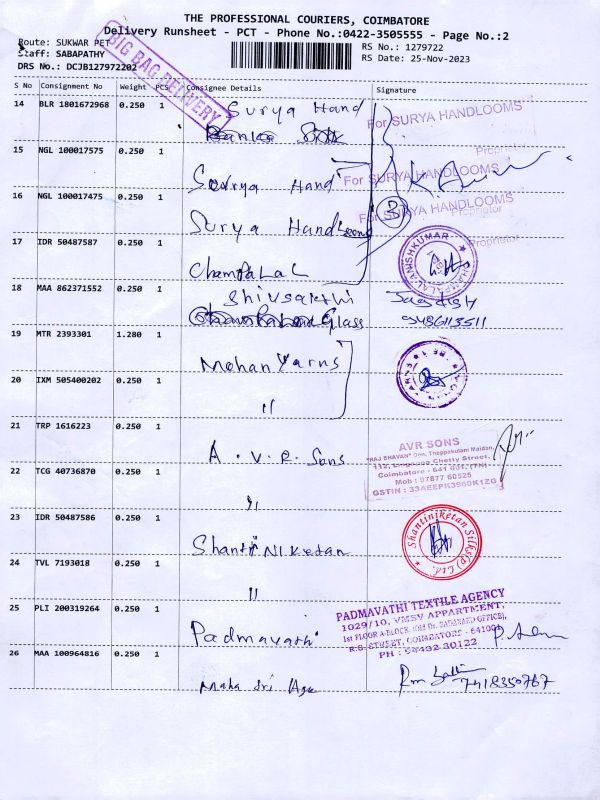 THE PROFESSIONAL COURIERS, COIMBATORE
Delivery Runsheet - PCT - Phone No.:0422-3505555 - Page No.:2
Route: SUKWAR PET
Staff: SABAPATHY
DRS No.: DCJB127972202
RS No.: 1279722
RS Date: 25-Nov-2023
BIG BAG DELIVERY
S No Consignment No Weight PCS Consignee Details Signature
14 BLR 1801672968 0.250 1 Surya Hand
For SURYA HANDLOOMS
Proprietor
15 NGL 100017575 0.250 1 Surya Hand
For SURYA HANDLOOMS
16 NGL 100017475 0.250 1 Surya Handloom
For SURYA HANDLOOMS
Proprietor
3
17 IDR 50487587 0.250 1 Champalal
Proprietor
CHAMPALAL ANISHKUMAR
18 MAA 862371552 0.250 1 Shivsakthi
Glass
Jagdish
9486113511
19 MTR 2393301 1.280 1 Mohan Yarns
20 IXM 505400202 0.250 1 "
21 TRP 1616223 0.250 1 A.V.R. Sons
AVR SONS
"RAJ BHAVAN" Opp. Theppakulam Maidan,
112, Chetty Street,
Coimbatore - 641 001. (TN)
Mob : 97877 60525
GSTIN : 33AEEPK3960K1ZG
22 TCG 40736870 0.250 1 "
23 IDR 50487586 0.250 1 Shanti Niketan
Shantiniketan Silks (p) Ltd.
24 TVL 7193018 0.250 1 "
25 PLI 200319264 0.250 1 Padmavathi
PADMAVATHI TEXTILE AGENCY
1029/10, VMSV APPARTMENT,
1st FLOOR A-BLOCK, (Old Dr. SADANAND OFFICE),
R.G. STREET, COIMBATORE - 641001
PH : 94432 30122
26 MAA 100964816 0.250 1 Maha Sri Age
7418350767